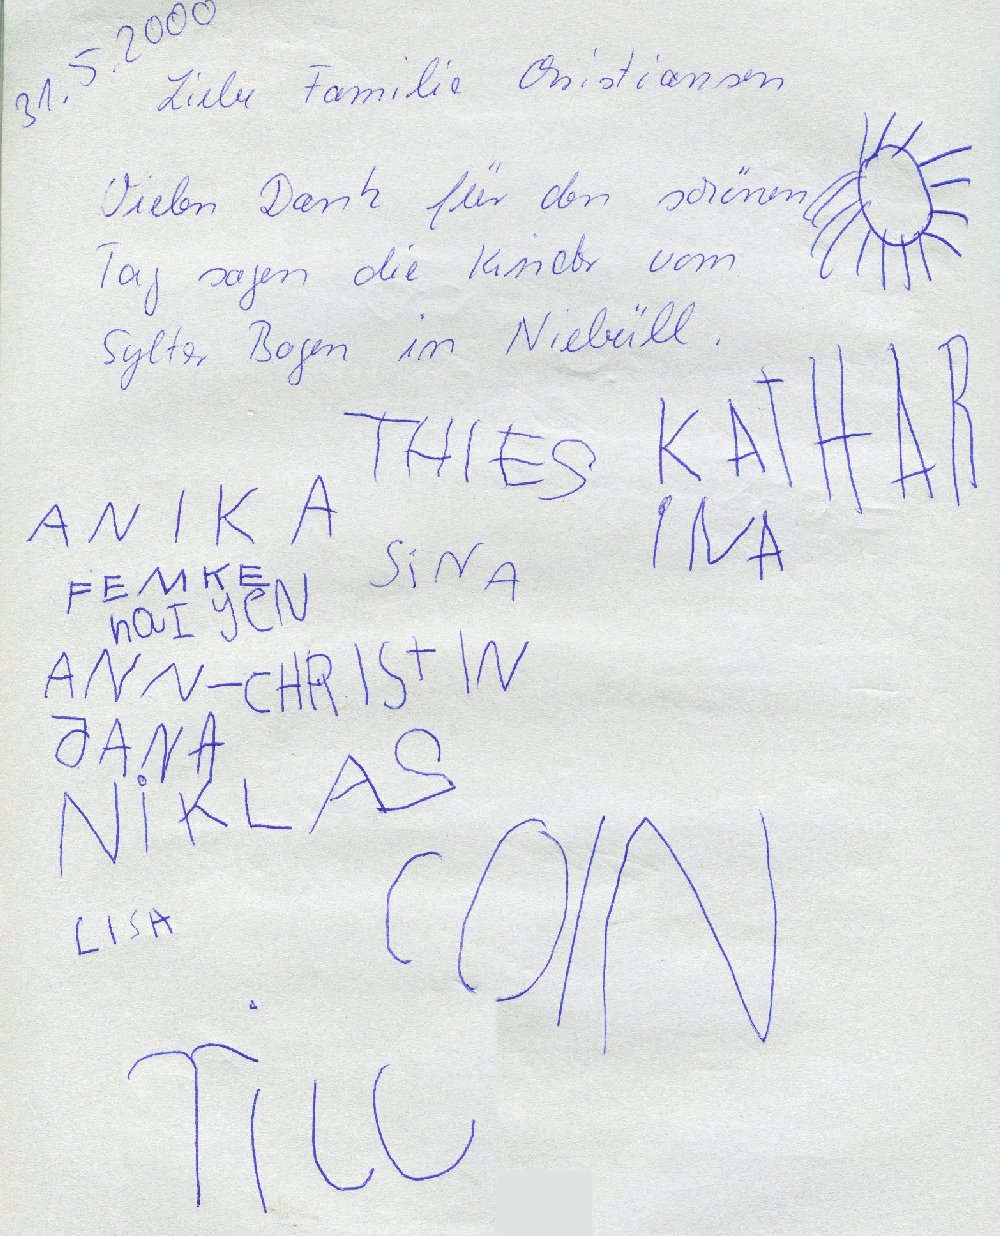 31.5.2000
Liebe Familie Christiansen
Vielen Dank für den schönen
Tag sagen die Kinder vom
Sylter Bogen in Niebüll.
THIES KATHAR
INA
ANIKA
SiNA
FEMKE
hai YEN
ANN-CHRISTIN
JANA
NiKLAS
COIN
LISA
TiLL